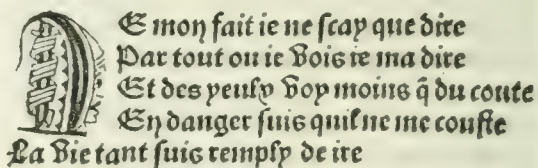 DE mon fait ie ne scay que dire
Par tout ou ie vois ie ma dire
Et des yeulx voy moins q̃ du coute
En danger suis quil ne me couste
La vie tant suis remply de ire